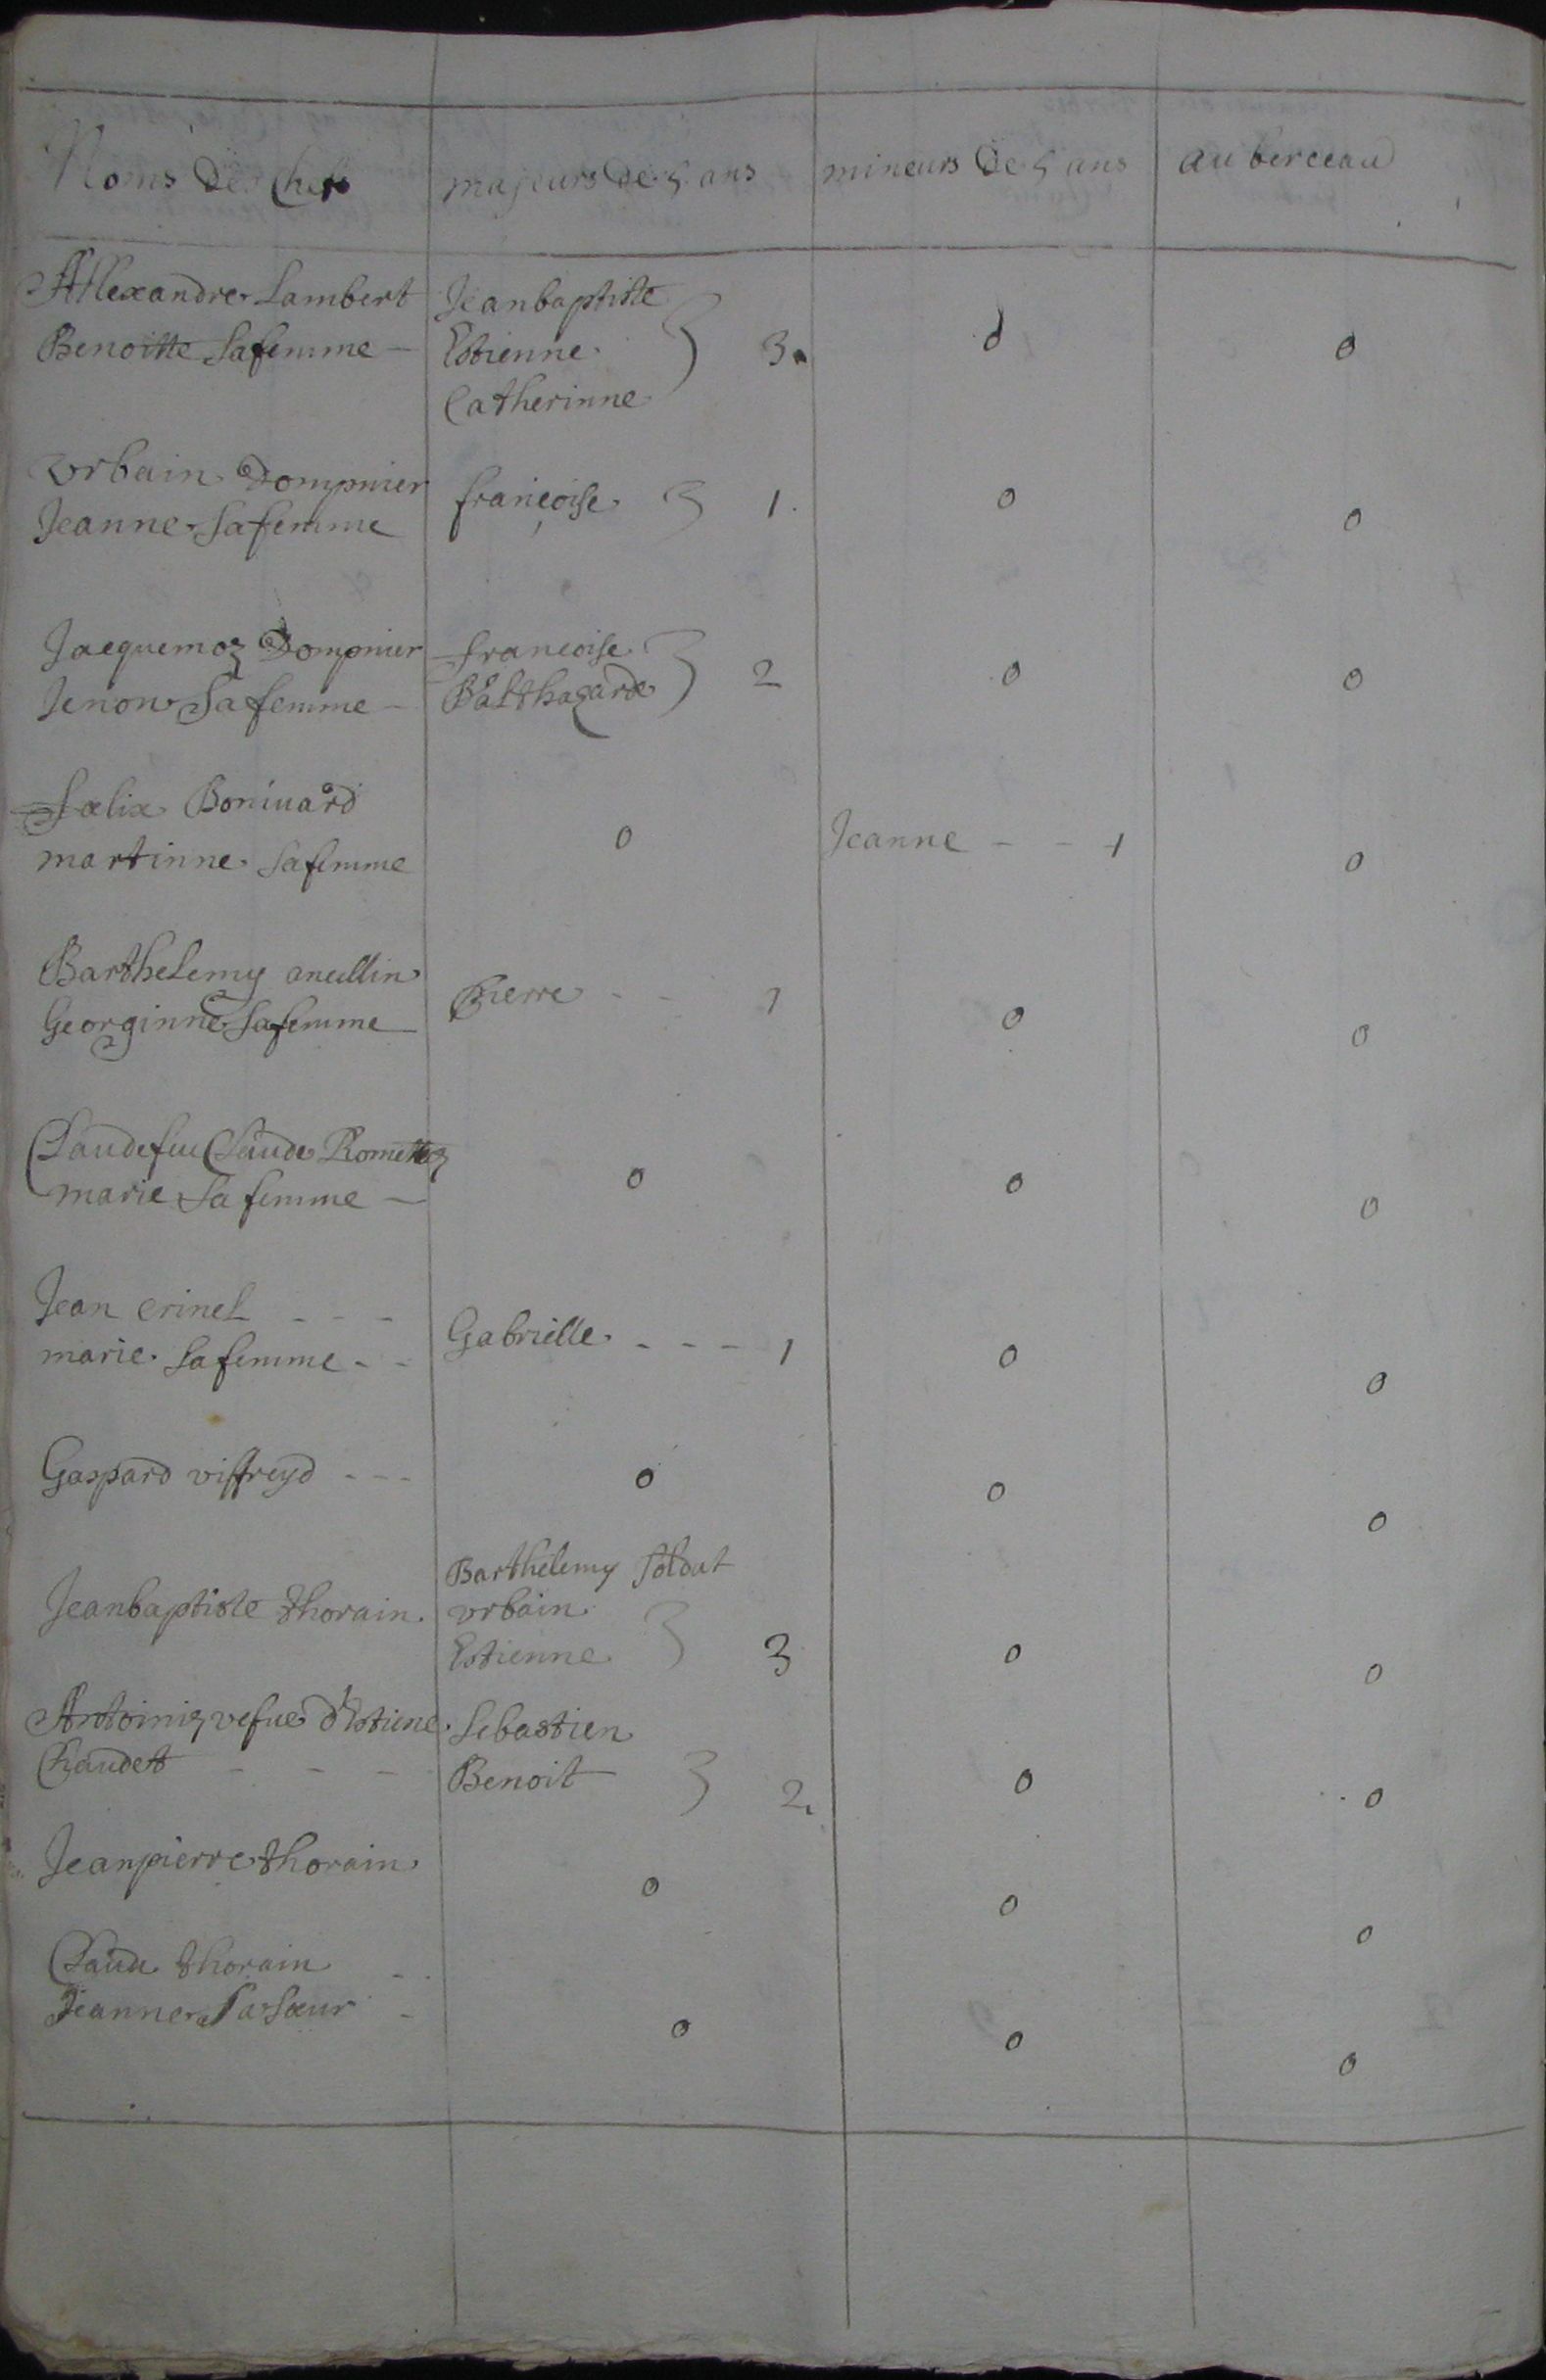 Noms des Chefs majeurs de 5 ans mineurs de 5 ans au berceau
Allexandre Lambert Jeanbaptiste
Benoitte Sa femme Estienne 3 0 0
Catherinne
Vrbain Dompnier francoise 1 0 0
Jeanne Sa femme
Jacquemoz Dompnier francoise 2 0 0
Jenon Sa femme Balthazarde
Fælix Boniuard 0 Jeanne 1 0
martinne Sa femme
Barthelemy anullin Pierre 1 0 0
Georginne Sa femme
Claude feu Claude Romettoz 0 0 0
marie Sa femme
Jean crinel Gabrielle 1 0 0
marie Sa femme
Gaspard viffreyd 0 0 0
Barthelemy Soldat
Jeanbaptiste thorain vrbain
Estienne 3 0 0
Antoiniz vefue d'Estiene Sebastien
Chaudet Benoit 2 0 0
Jeanpierre thorain 0 0 0
Claude thorain
Jeanne Sa Sœur 0 0 0